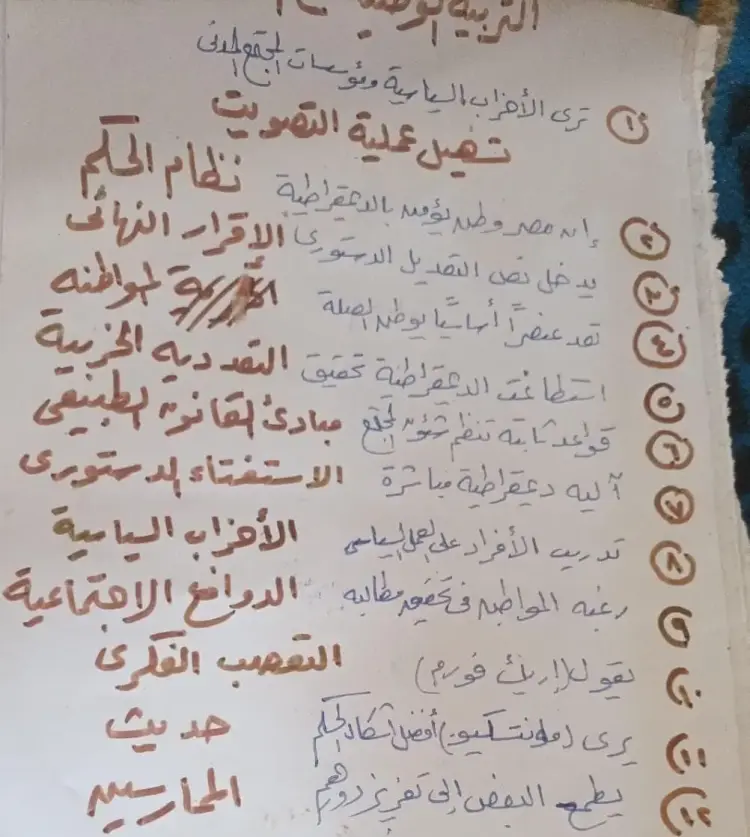 التربية الوطنية
① ترى الأحزاب السياسية ومؤسسات المجتمع المدنى
تسهيل عملية التصويت
② إن مصر وطن يؤمن بالديمقراطية نظام الحكم
③ يدخل نص التعديل الدستورى الإقرار النهائى
④ تعد عنصراً أساسياً يوطن الصلة المواطنه
⑤ استطاعت الديمقراطية تحقيق التعددية الحزبية
⑥ قواعد ثابتة تنظم شئون المجتمع مبادئ القانون الطبيعى
⑦ آليه ديمقراطية مباشرة الاستفتاء الدستورى
⑧ تدريب الأفراد على العمل السياسى الأحزاب السياسية
⑨ رغبه المواطن فى تحقيق مطالبه الدوافع الاجتماعية
يقول (إريك فورم) التعصب الفكرى
يرى (مونتسكيو) أفضل أشكال الحكم حديث
يطمح البعض إلى تعزيز دورهم الممارسين